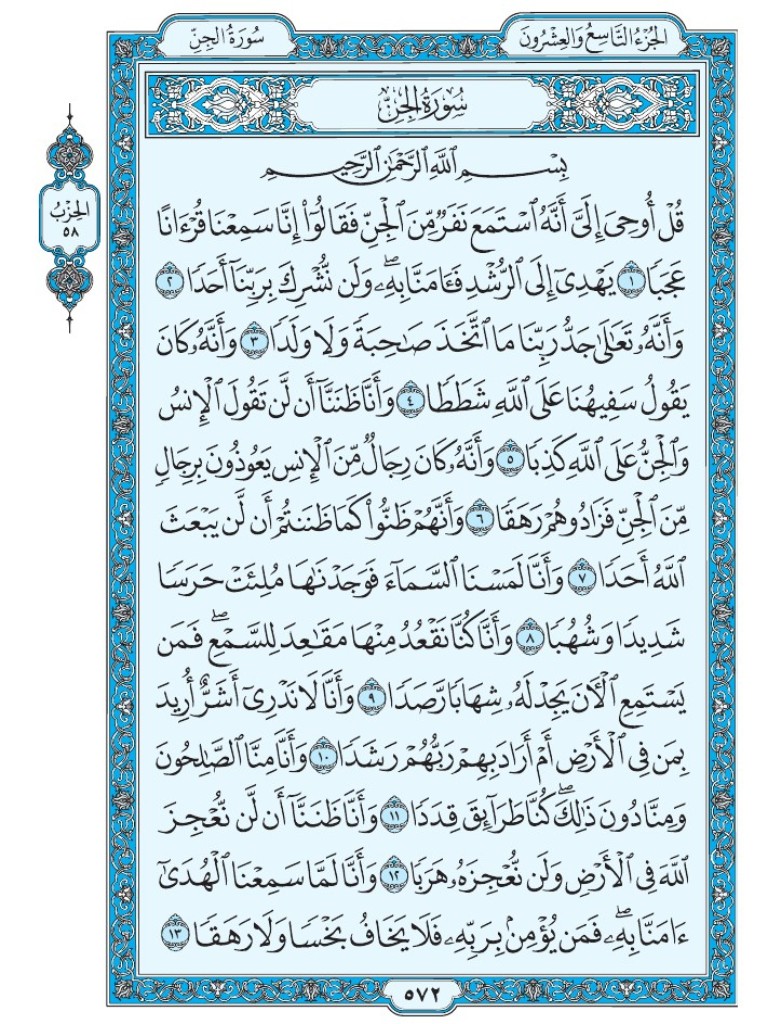 سُورَةُ الجِنّ
الجُزْءُ التَّاسِعُ وَالعِشْرُونَ
سُورَةُ الجِنّ
الحِزْبُ
٥٨
بِسْمِ ٱللَّهِ ٱلرَّحْمَٰنِ ٱلرَّحِيمِ
قُلْ أُوحِىَ إِلَىَّ أَنَّهُ ٱسْتَمَعَ نَفَرٌ مِّنَ ٱلْجِنِّ فَقَالُوٓا۟ إِنَّا سَمِعْنَا قُرْءَانًا
عَجَبًا ١ يَهْدِىٓ إِلَى ٱلرُّشْدِ فَـَٔامَنَّا بِهِۦ ۖ وَلَن نُّشْرِكَ بِرَبِّنَآ أَحَدًا ٢
وَأَنَّهُۥ تَعَٰلَىٰ جَدُّ رَبِّنَا مَا ٱتَّخَذَ صَٰحِبَةً وَلَا وَلَدًا ٣ وَأَنَّهُۥ كَانَ
يَقُولُ سَفِيهُنَا عَلَى ٱللَّهِ شَطَطًا ٤ وَأَنَّا ظَنَنَّآ أَن لَّن تَقُولَ ٱلْإِنسُ
وَٱلْجِنُّ عَلَى ٱللَّهِ كَذِبًا ٥ وَأَنَّهُۥ كَانَ رِجَالٌ مِّنَ ٱلْإِنسِ يَعُوذُونَ بِرِجَالٍ
مِّنَ ٱلْجِنِّ فَزَادُوهُمْ رَهَقًا ٦ وَأَنَّهُمْ ظَنُّوا۟ كَمَا ظَنَنتُمْ أَن لَّن يَبْعَثَ
ٱللَّهُ أَحَدًا ٧ وَأَنَّا لَمَسْنَا ٱلسَّمَآءَ فَوَجَدْنَٰهَا مُلِئَتْ حَرَسًا
شَدِيدًا وَشُهُبًا ٨ وَأَنَّا كُنَّا نَقْعُدُ مِنْهَا مَقَٰعِدَ لِلسَّمْعِ ۖ فَمَن
يَسْتَمِعِ ٱلْـَٔانَ يَجِدْ لَهُۥ شِهَابًا رَّصَدًا ٩ وَأَنَّا لَا نَدْرِىٓ أَشَرٌّ أُرِيدَ
بِمَن فِى ٱلْأَرْضِ أَمْ أَرَادَ بِهِمْ رَبُّهُمْ رَشَدًا ١٠ وَأَنَّا مِنَّا ٱلصَّٰلِحُونَ
وَمِنَّا دُونَ ذَٰلِكَ ۖ كُنَّا طَرَآئِقَ قِدَدًا ١١ وَأَنَّا ظَنَنَّآ أَن لَّن نُّعْجِزَ
ٱللَّهَ فِى ٱلْأَرْضِ وَلَن نُّعْجِزَهُۥ هَرَبًا ١٢ وَأَنَّا لَمَّا سَمِعْنَا ٱلْهُدَىٰٓ
ءَامَنَّا بِهِۦ ۖ فَمَن يُؤْمِنۢ بِرَبِّهِۦ فَلَا يَخَافُ بَخْسًا وَلَا رَهَقًا ١٣
٥٧٢